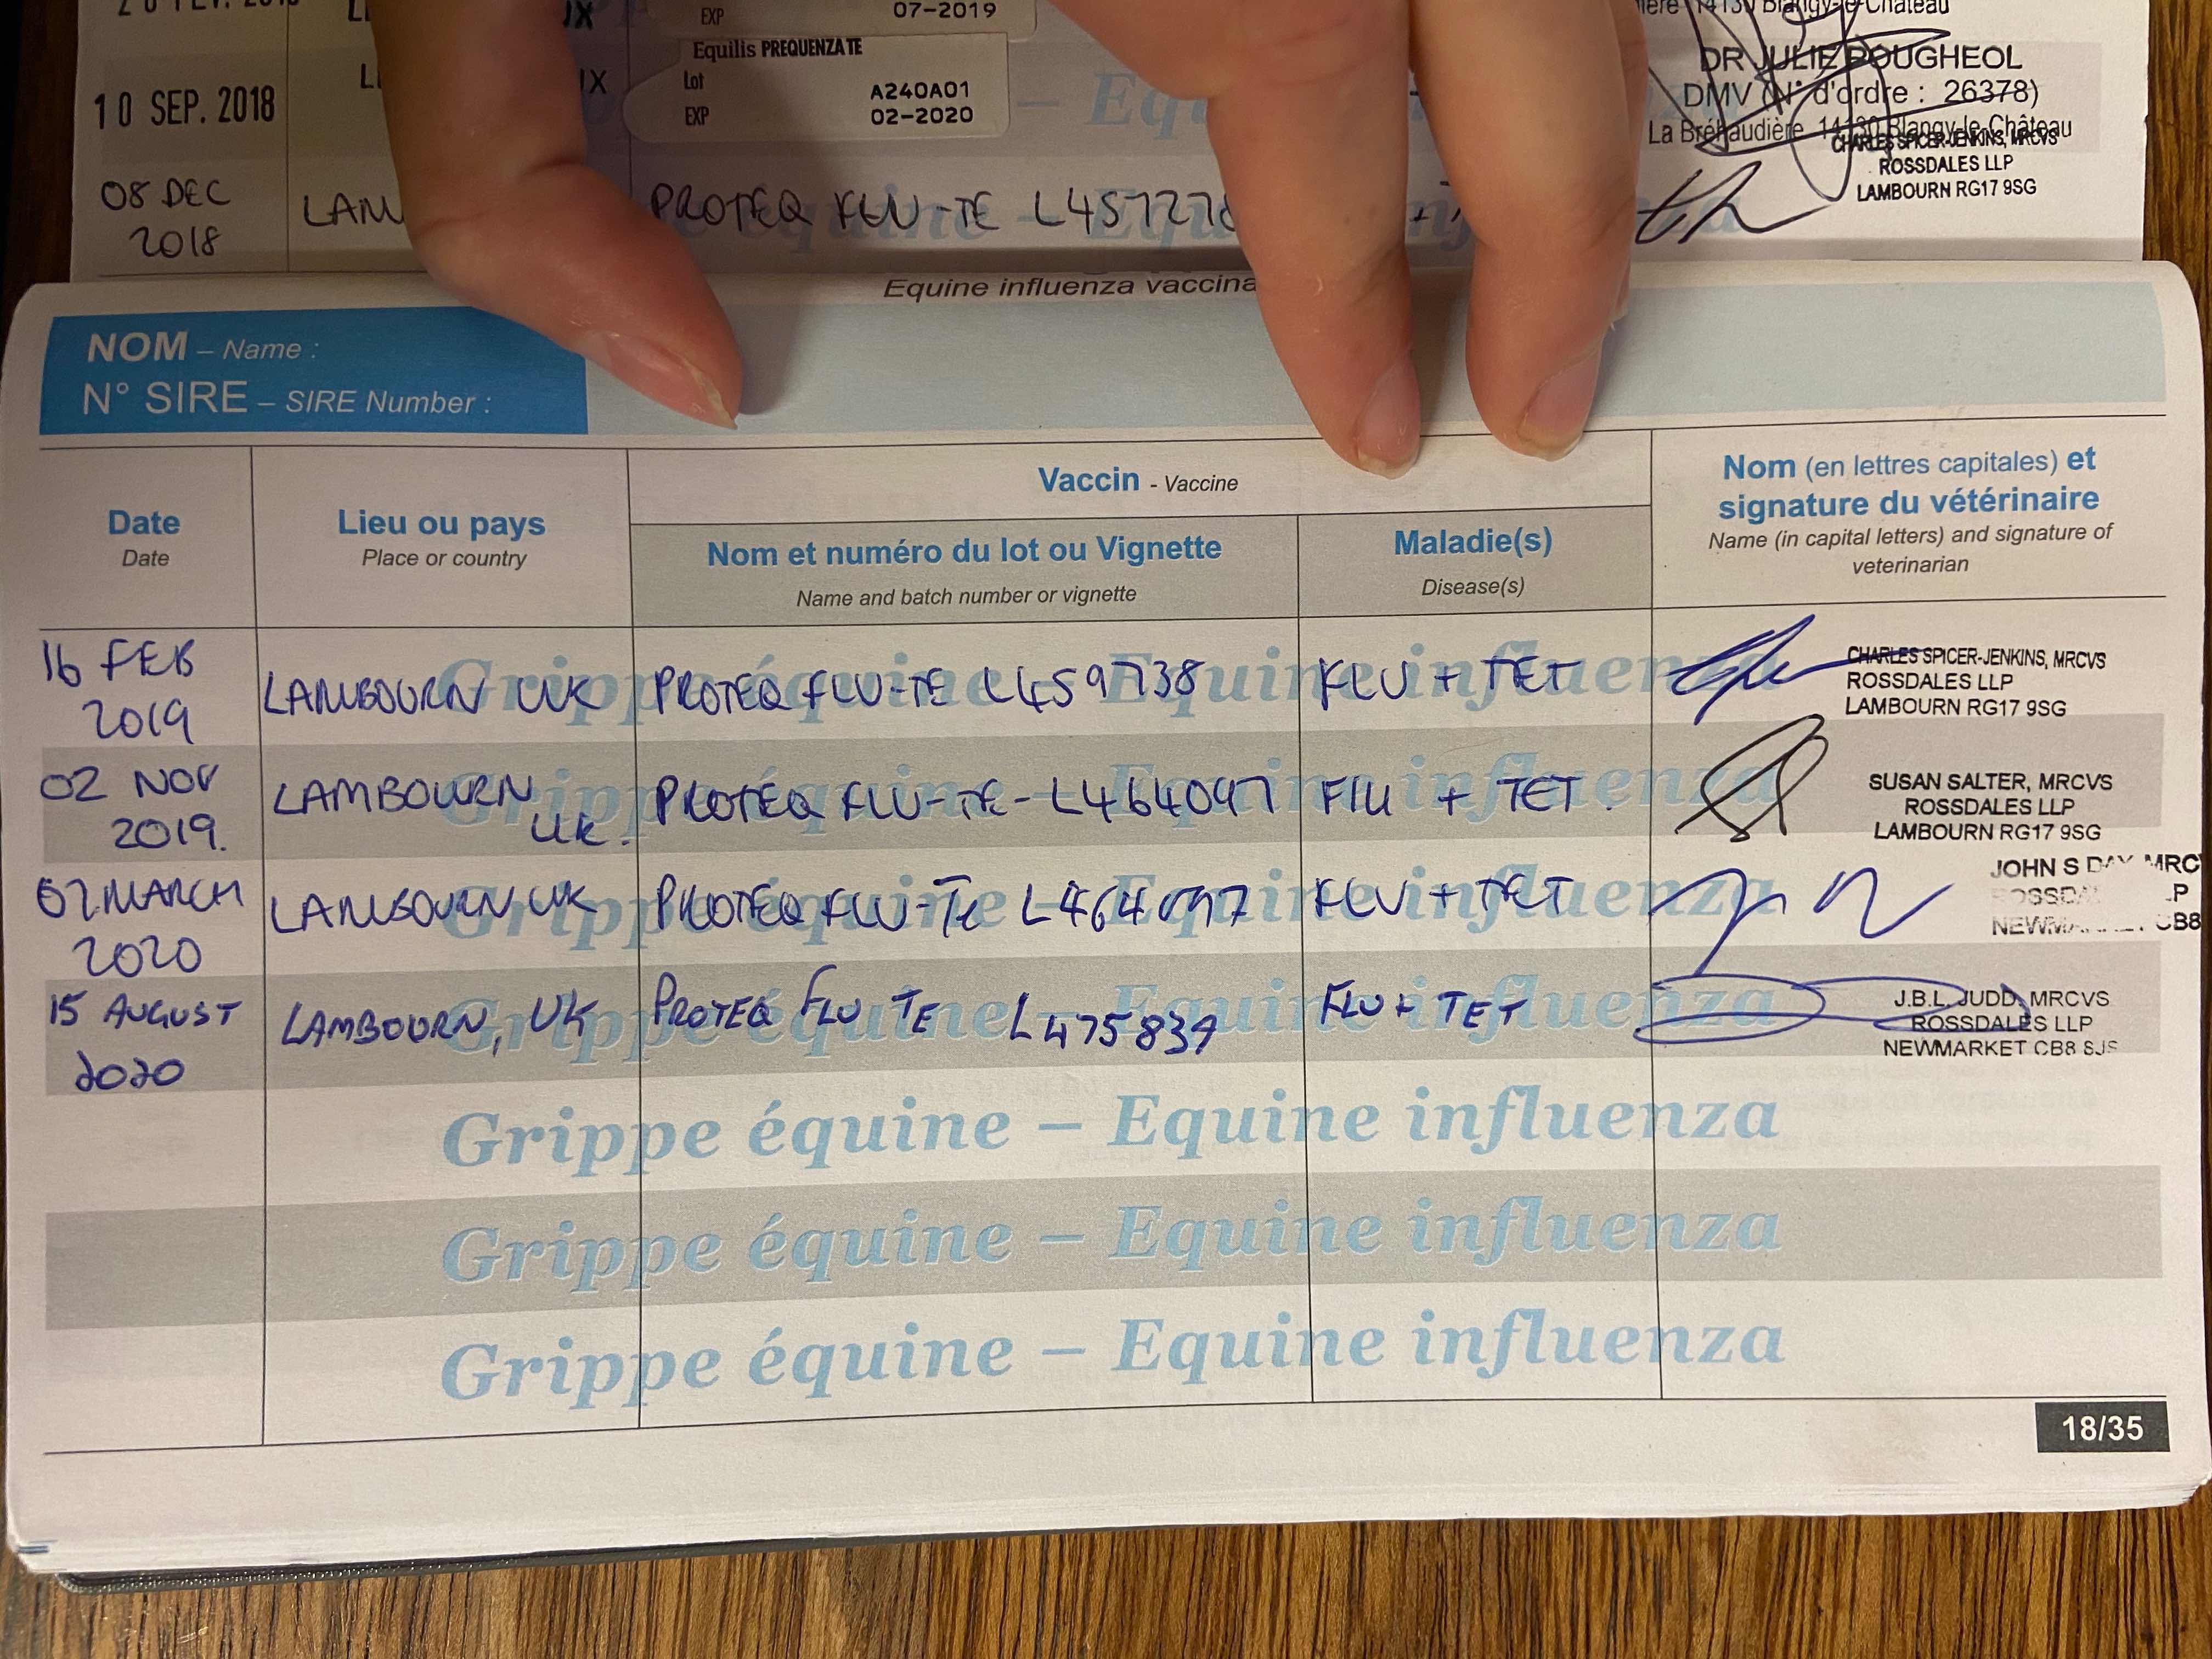 EXP 07-2019
Equilis PREQUENZA TE
Lot A240A01
EXP 02-2020
10 SEP. 2018
Blangy-le-Château
DR JULIE ROUGHEOL
DMV (N° d'ordre : 26378)
La Bréhaudière 14130 Blangy-le-Château
CHARLES SPICER-JENKINS, MRCVS
ROSSDALES LLP
LAMBOURN RG17 9SG
08 DEC
2018
PROTEQ FLU-TE
Equine influenza
NOM – Name :
N° SIRE – SIRE Number :
Date
Date
Lieu ou pays
Place or country
Vaccin - Vaccine
Nom et numéro du lot ou Vignette
Name and batch number or vignette
Maladie(s)
Disease(s)
Nom (en lettres capitales) et
signature du vétérinaire
Name (in capital letters) and signature of
veterinarian
16 FEB
2019
LAMBOURN UK
PROTEQ FLU-TE L459738
FLU + TET
CHARLES SPICER-JENKINS, MRCVS
ROSSDALES LLP
LAMBOURN RG17 9SG
Grippe équine – Equine influenza
02 NOV
2019.
LAMBOURN
UK.
PROTEQ FLU-TE-L464097
FLU + TET.
SUSAN SALTER, MRCVS
ROSSDALES LLP
LAMBOURN RG17 9SG
Grippe équine – Equine influenza
07 MARCH
2020
LAMBOURN UK
PROTEQ FLU-TE L464097
FLU + TET
JOHN S DAY
Grippe équine – Equine influenza
15 AUGUST
2020
LAMBOURN, UK
PROTEQ FLU TE L475839
FLU + TET
J.B.L. JUDD, MRCVS
ROSSDALES LLP
NEWMARKET CB8
Grippe équine – Equine influenza
Grippe équine – Equine influenza
Grippe équine – Equine influenza
Grippe équine – Equine influenza
18/35